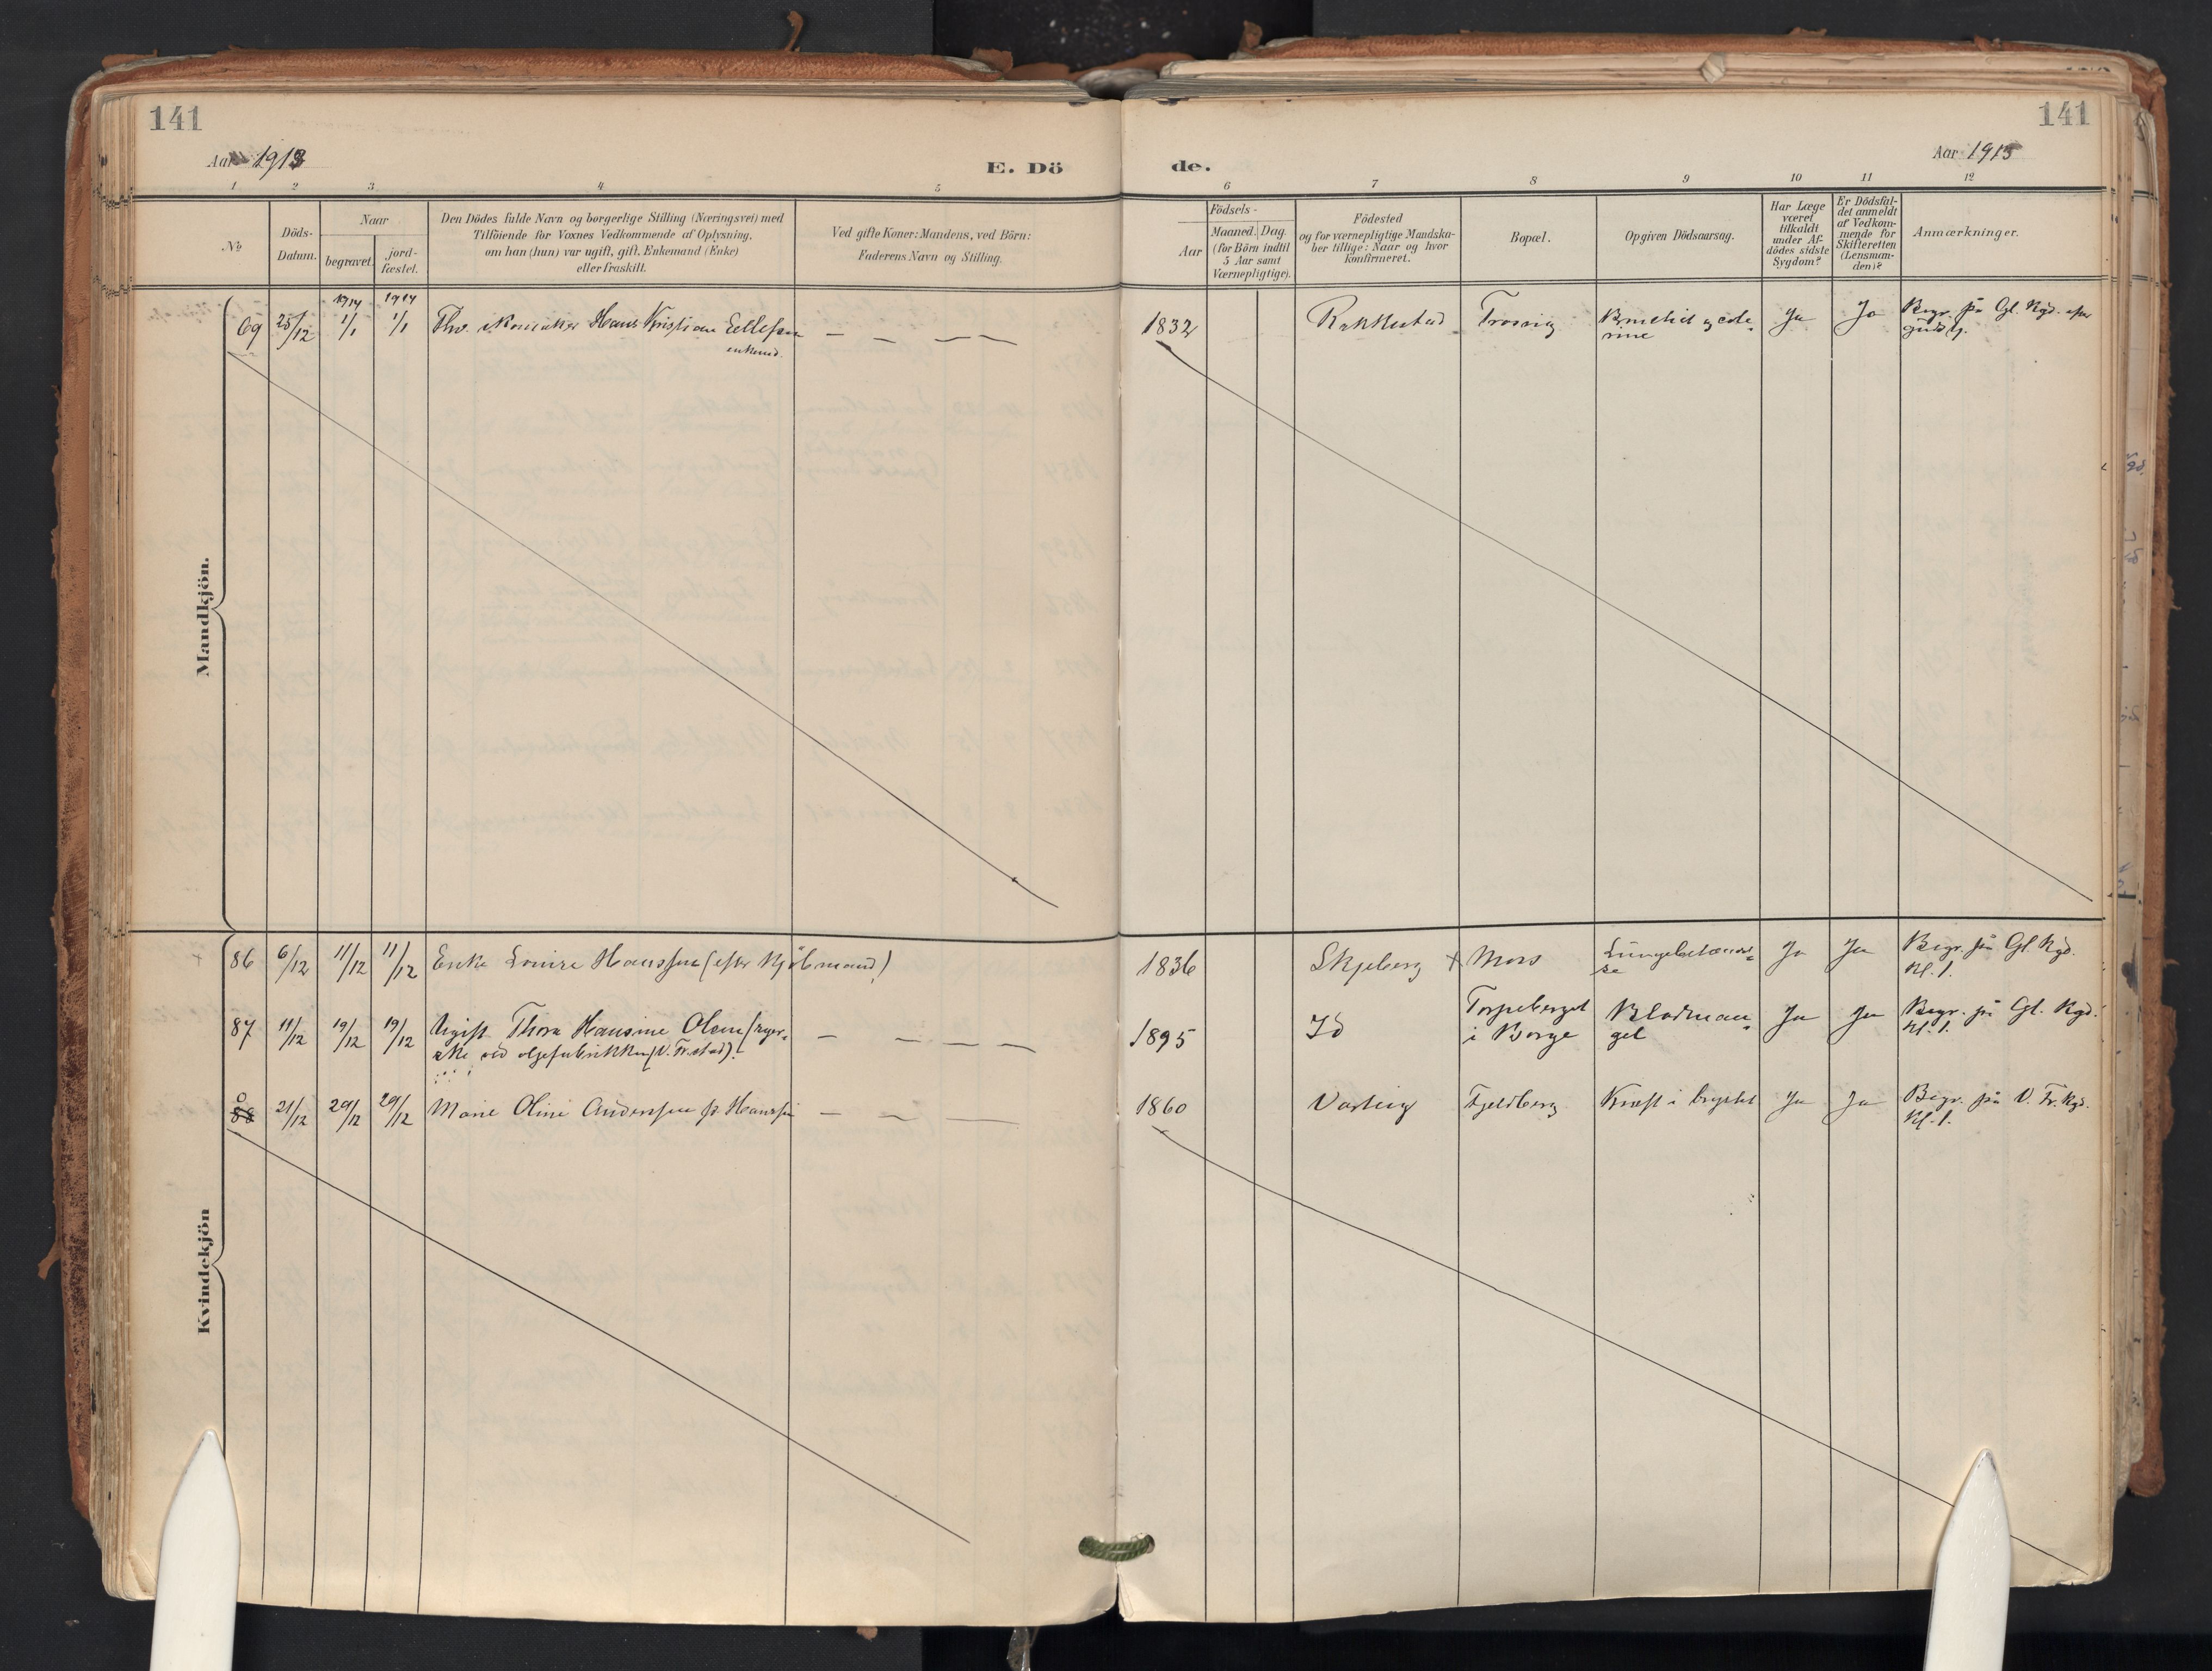 141
141
Aar 1913
E. Dö
de.
Aar 1913
1 2 3 4 5 6 7 8 9 10 11 12
№
Döds-
Datum.
Naar
begravet.
jord-
fæstet.
Den Dödes fulde Navn og borgerlige Stilling (Næringsvei) med
Tilföiende for Voxnes Vedkommende af Oplysning,
om han (hun) var ugift, gift, Enkemand (Enke)
eller fraskilt.
Ved gifte Koner: Mandens, ved Börn:
Faderens Navn og Stilling.
Födsels-
Aar
Maaned. Dag.
(for Börn indtil
5 Aar samt
Værnepligtige).
Födested
og for værnepligtige Mandska-
ber tillige: Naar og hvor
konfirmeret.
Bopæl.
Opgiven Dödsaarsag.
Har Læge
været
tilkaldt
under Af-
dödes sidste
Sygdom?
Er Dödsfal-
det anmeldt
af Vedkom-
mende for
Skifteretten
(Lensman-
den)?
Anmærkninger.
Mandkjön.
1914 1914
69 25/12 1/1 1/1 Fhv. skomaker Hans Kristian Ellefsen — — — — 1832 Rakkestad Trosvig Ja Ja Begr. på Gl. Kgd. efter
enkemd.
Kvindekjön
86 6/12 11/12 11/12 Enke Lovise Hanssen (efter Kjöbmand) 1836 Skjeberg + Moss Lungebetændel-
se Ja Ja Begr. på Gl. Kgd.
Kl. 1.
87 11/12 19/12 19/12 Ugift Thora Hansine Olsen
ved oljefabrikken (V. Fr.stad). — — — — 1895 Id Torpeberget
i Borge Blodman-
gel Ja Ja Begr. på Gl. Kgd.
Kl. 1.
88 21/12 29/12 29/12 Marie Oline Anderssen f. Hanssen — — — 1860 Varteig Fjeldberg Kræft i brystet Ja Ja Begr. på V. Fr. Kgd.
Kl. 1.